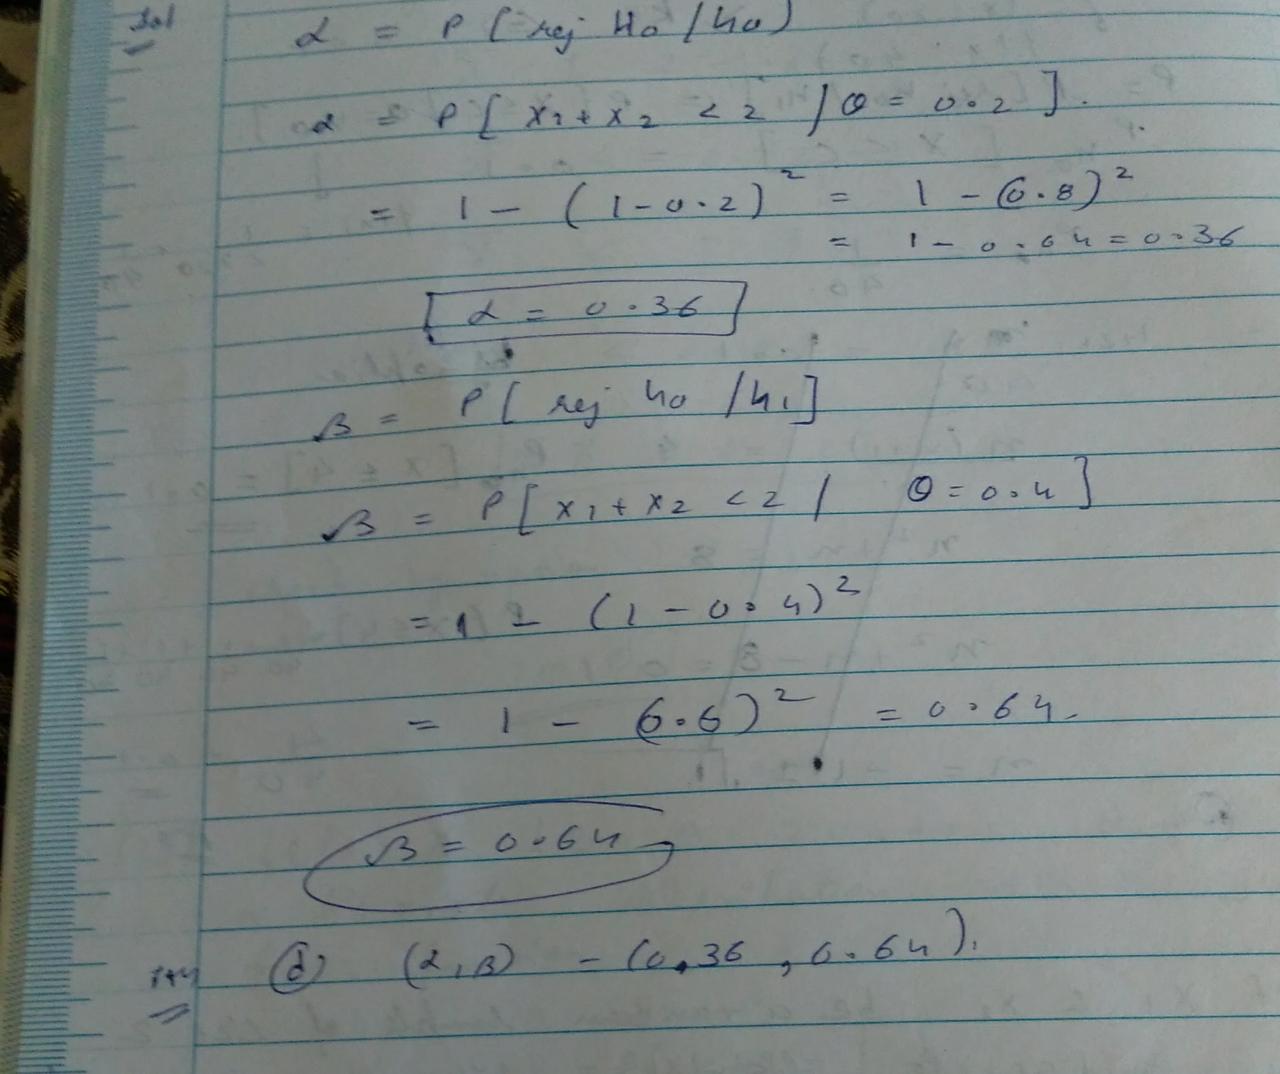 Sol
α = P [ rej H0 / h0 )
α = P [ x1 + x2 < 2 / θ = 0.2 ].
= 1 - ( 1 - 0.2 )² = 1 - (0.8)²
= 1 - 0.64 = 0.36
α = 0.36
β = P [ rej h0 / h1 ]
β = P [ x1 + x2 < 2 / θ = 0.4 ]
= 1 - ( 1 - 0.4 )²
= 1 - (0.6)² = 0.64
β = 0.64
(d) (α, β) - (0.36, 0.64).